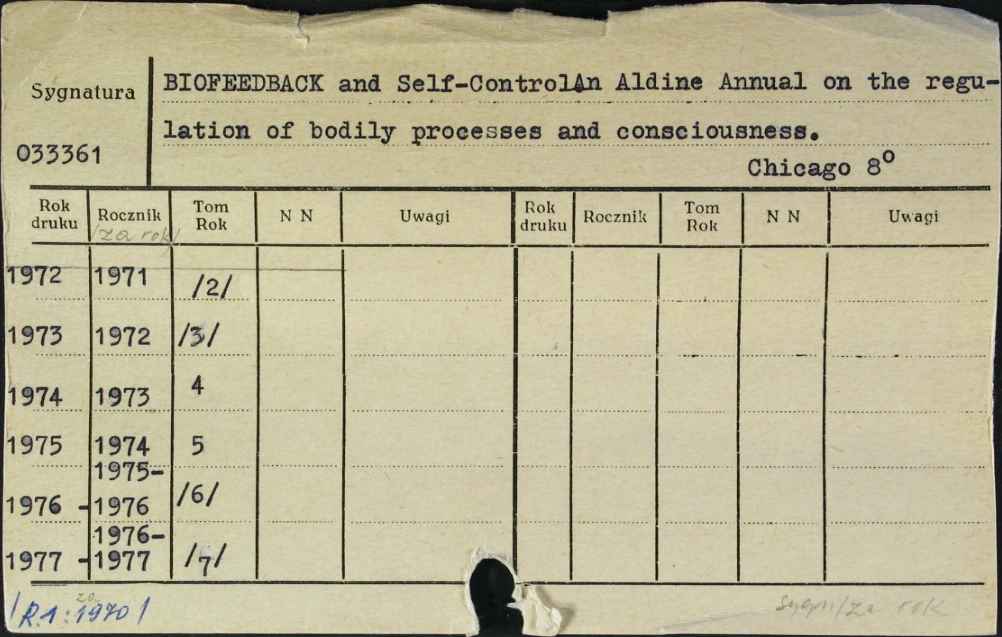 Sygnatura
BIOFEEDBACK and Self-Control An Aldine Annual on the regu-
lation of bodily processes and consciousness.
033361
Chicago 8°
Rok druku Rocznik Tom Rok N N Uwagi Rok druku Rocznik Tom Rok N N Uwagi
/za rok/
1972 1971 /2/
1973 1972 /3/
1974 1973 4
1975 1974 5
1975-
1976 -1976 /6/
1976-
1977 -1977 /7/
za
/R.1:1970/
/za rok